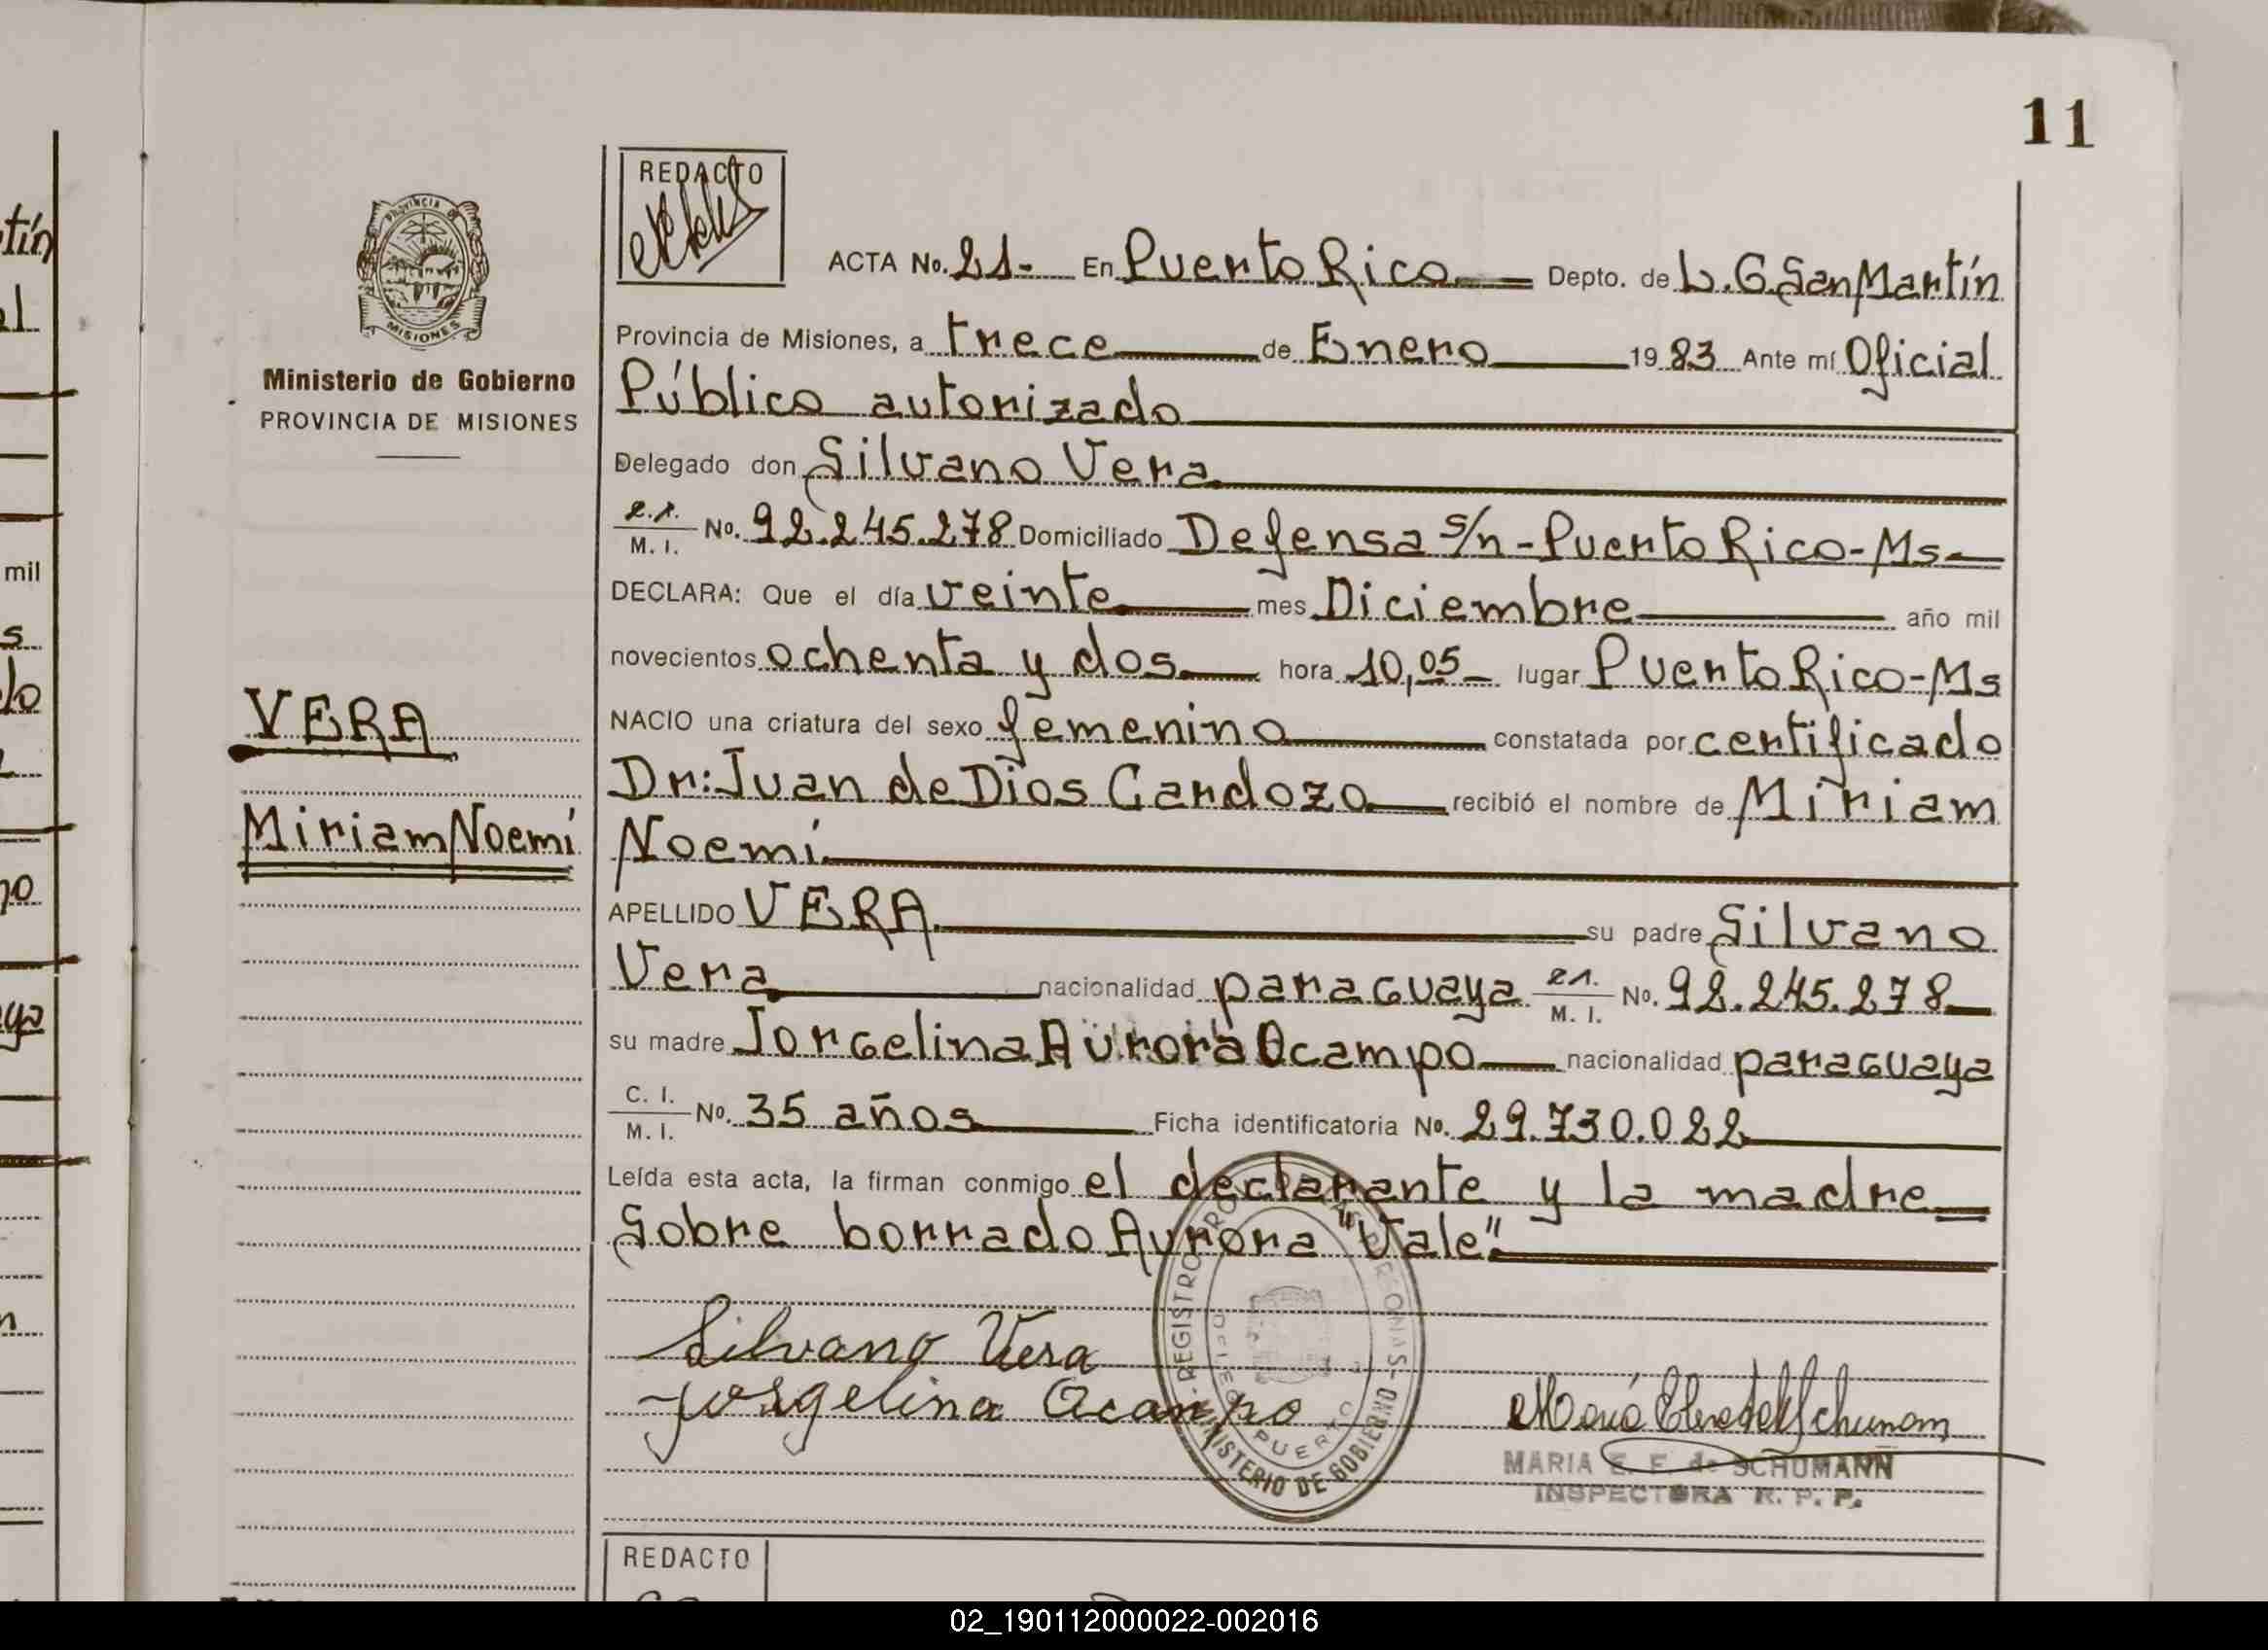 11
REDACTO
ACTA No. 21- En Puerto Rico Depto. de L. G. San Martín
Provincia de Misiones, a trece de Enero 1983 Ante mí Oficial
Público autorizado
Delegado don Silvano Vera
M. I. No. 92.245.278 Domiciliado Defensa s/n - Puerto Rico - Ms -
DECLARA: Que el día veinte mes Diciembre año mil
novecientos ochenta y dos hora 10,05 - lugar Puerto Rico - Ms
NACIO una criatura del sexo femenino constatada por certificado
Dr: Juan de Dios Cardozo recibió el nombre de Miriam
Noemí
APELLIDO VERA su padre Silvano
Vera nacionalidad paraguaya M. I. No. 92.245.278
su madre Jorgelina Aurora Ocampo nacionalidad paraguaya
C. I. M. I. No. 35 años Ficha identificatoria No. 29.730.022
Leída esta acta, la firman conmigo el declarante y la madre
Sobre borrado Aurora "Vale".
Silvano Vera
Jorgelina Ocampo
MARIA E. F. de SCHUMANN
INSPECTORA R. P. P.
MINISTERIO DE GOBIERNO
REGISTRO
PUERTO
PROVINCIA DE
MISIONES
Ministerio de Gobierno
PROVINCIA DE MISIONES
VERA
Miriam Noemí
tín
mil
REDACTO
02_190112000022-002016